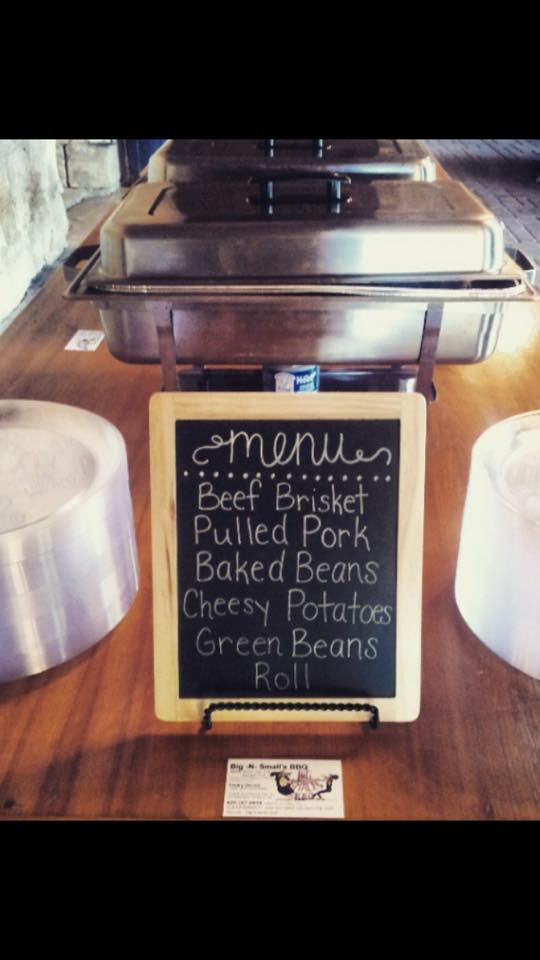 menu
Beef Brisket
Pulled Pork
Baked Beans
Cheesy Potatoes
Green Beans
Roll
Big -N- Small's BBQ